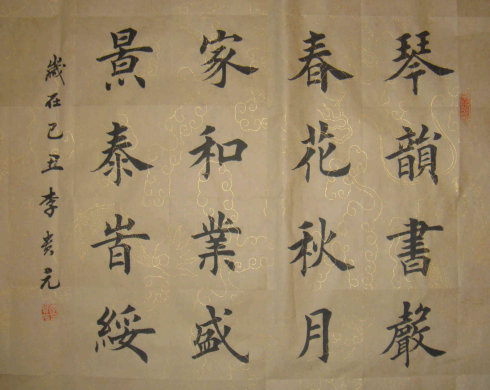 琴韻書聲
春花秋月
家和業盛
景泰旹綏
歲在己丑李貴元